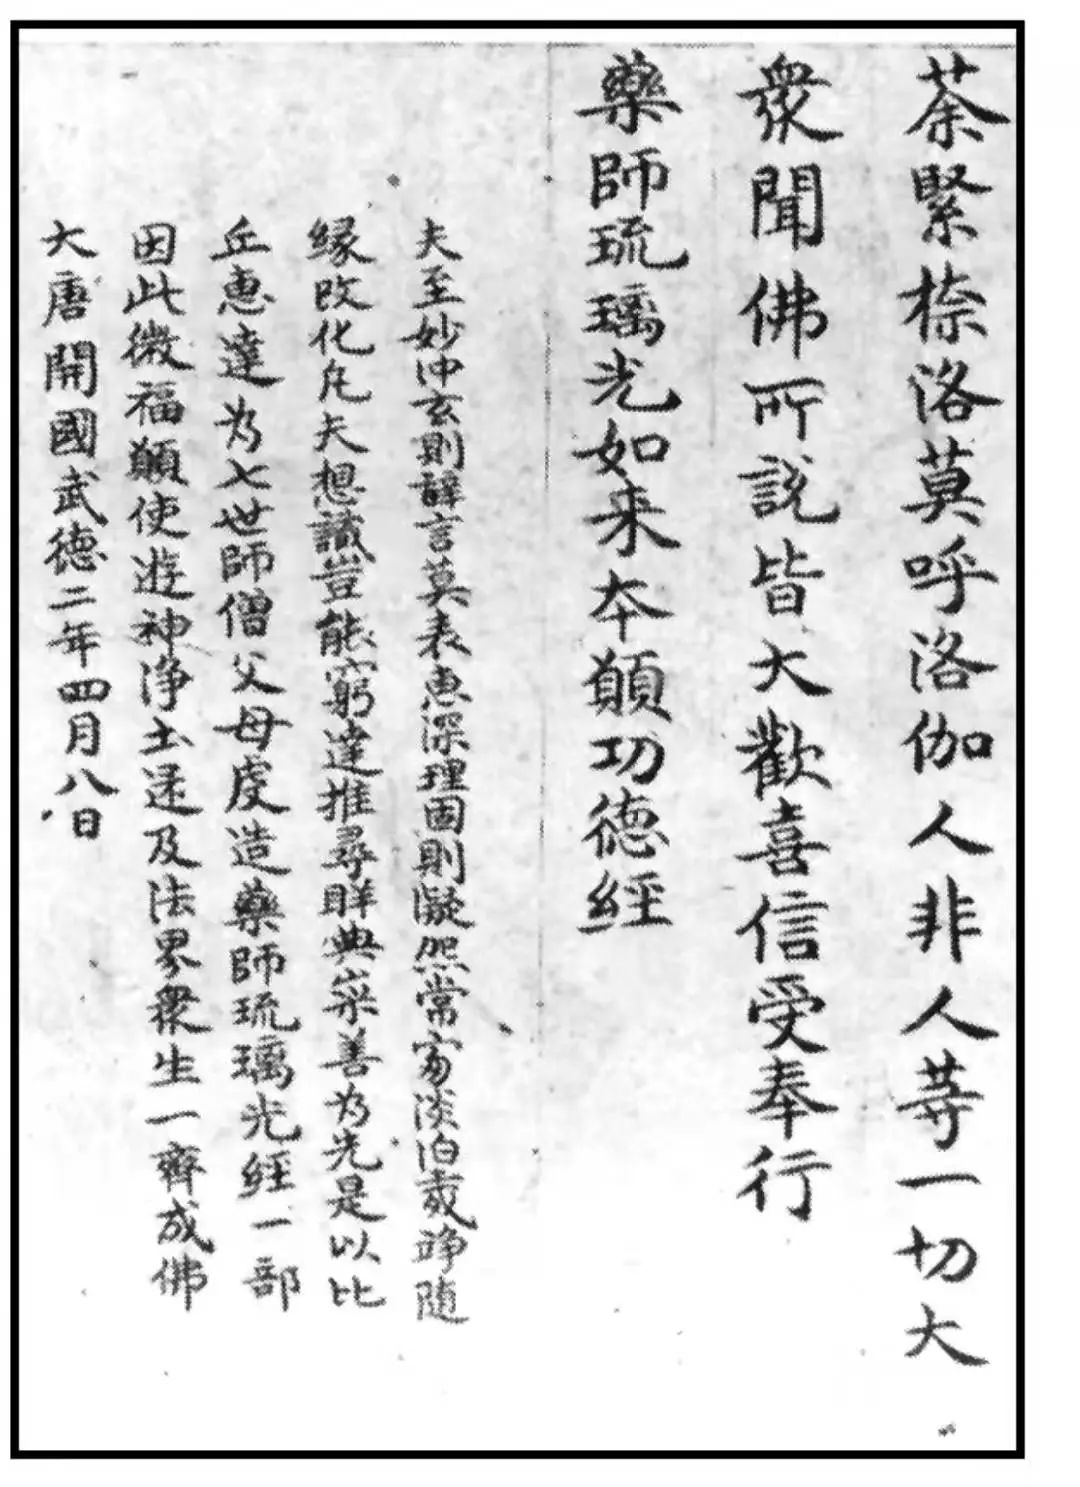 荼緊捺洛莫呼洛伽人非人等一切大
衆聞佛所說皆大歡喜信受奉行
藥師琉璃光如来本願功德經
夫至妙沖玄則辭言莫表惠深理固則凝然常寂淡泊夷竫随
縁改化凡夫想識豈能窮達推尋聖典崇善為先是以比
丘惠達為七世師僧父母虔造藥師琉璃光經一部
因此微福願使遊神净土逮及法界衆生一齊成佛
大唐開國武德二年四月八日